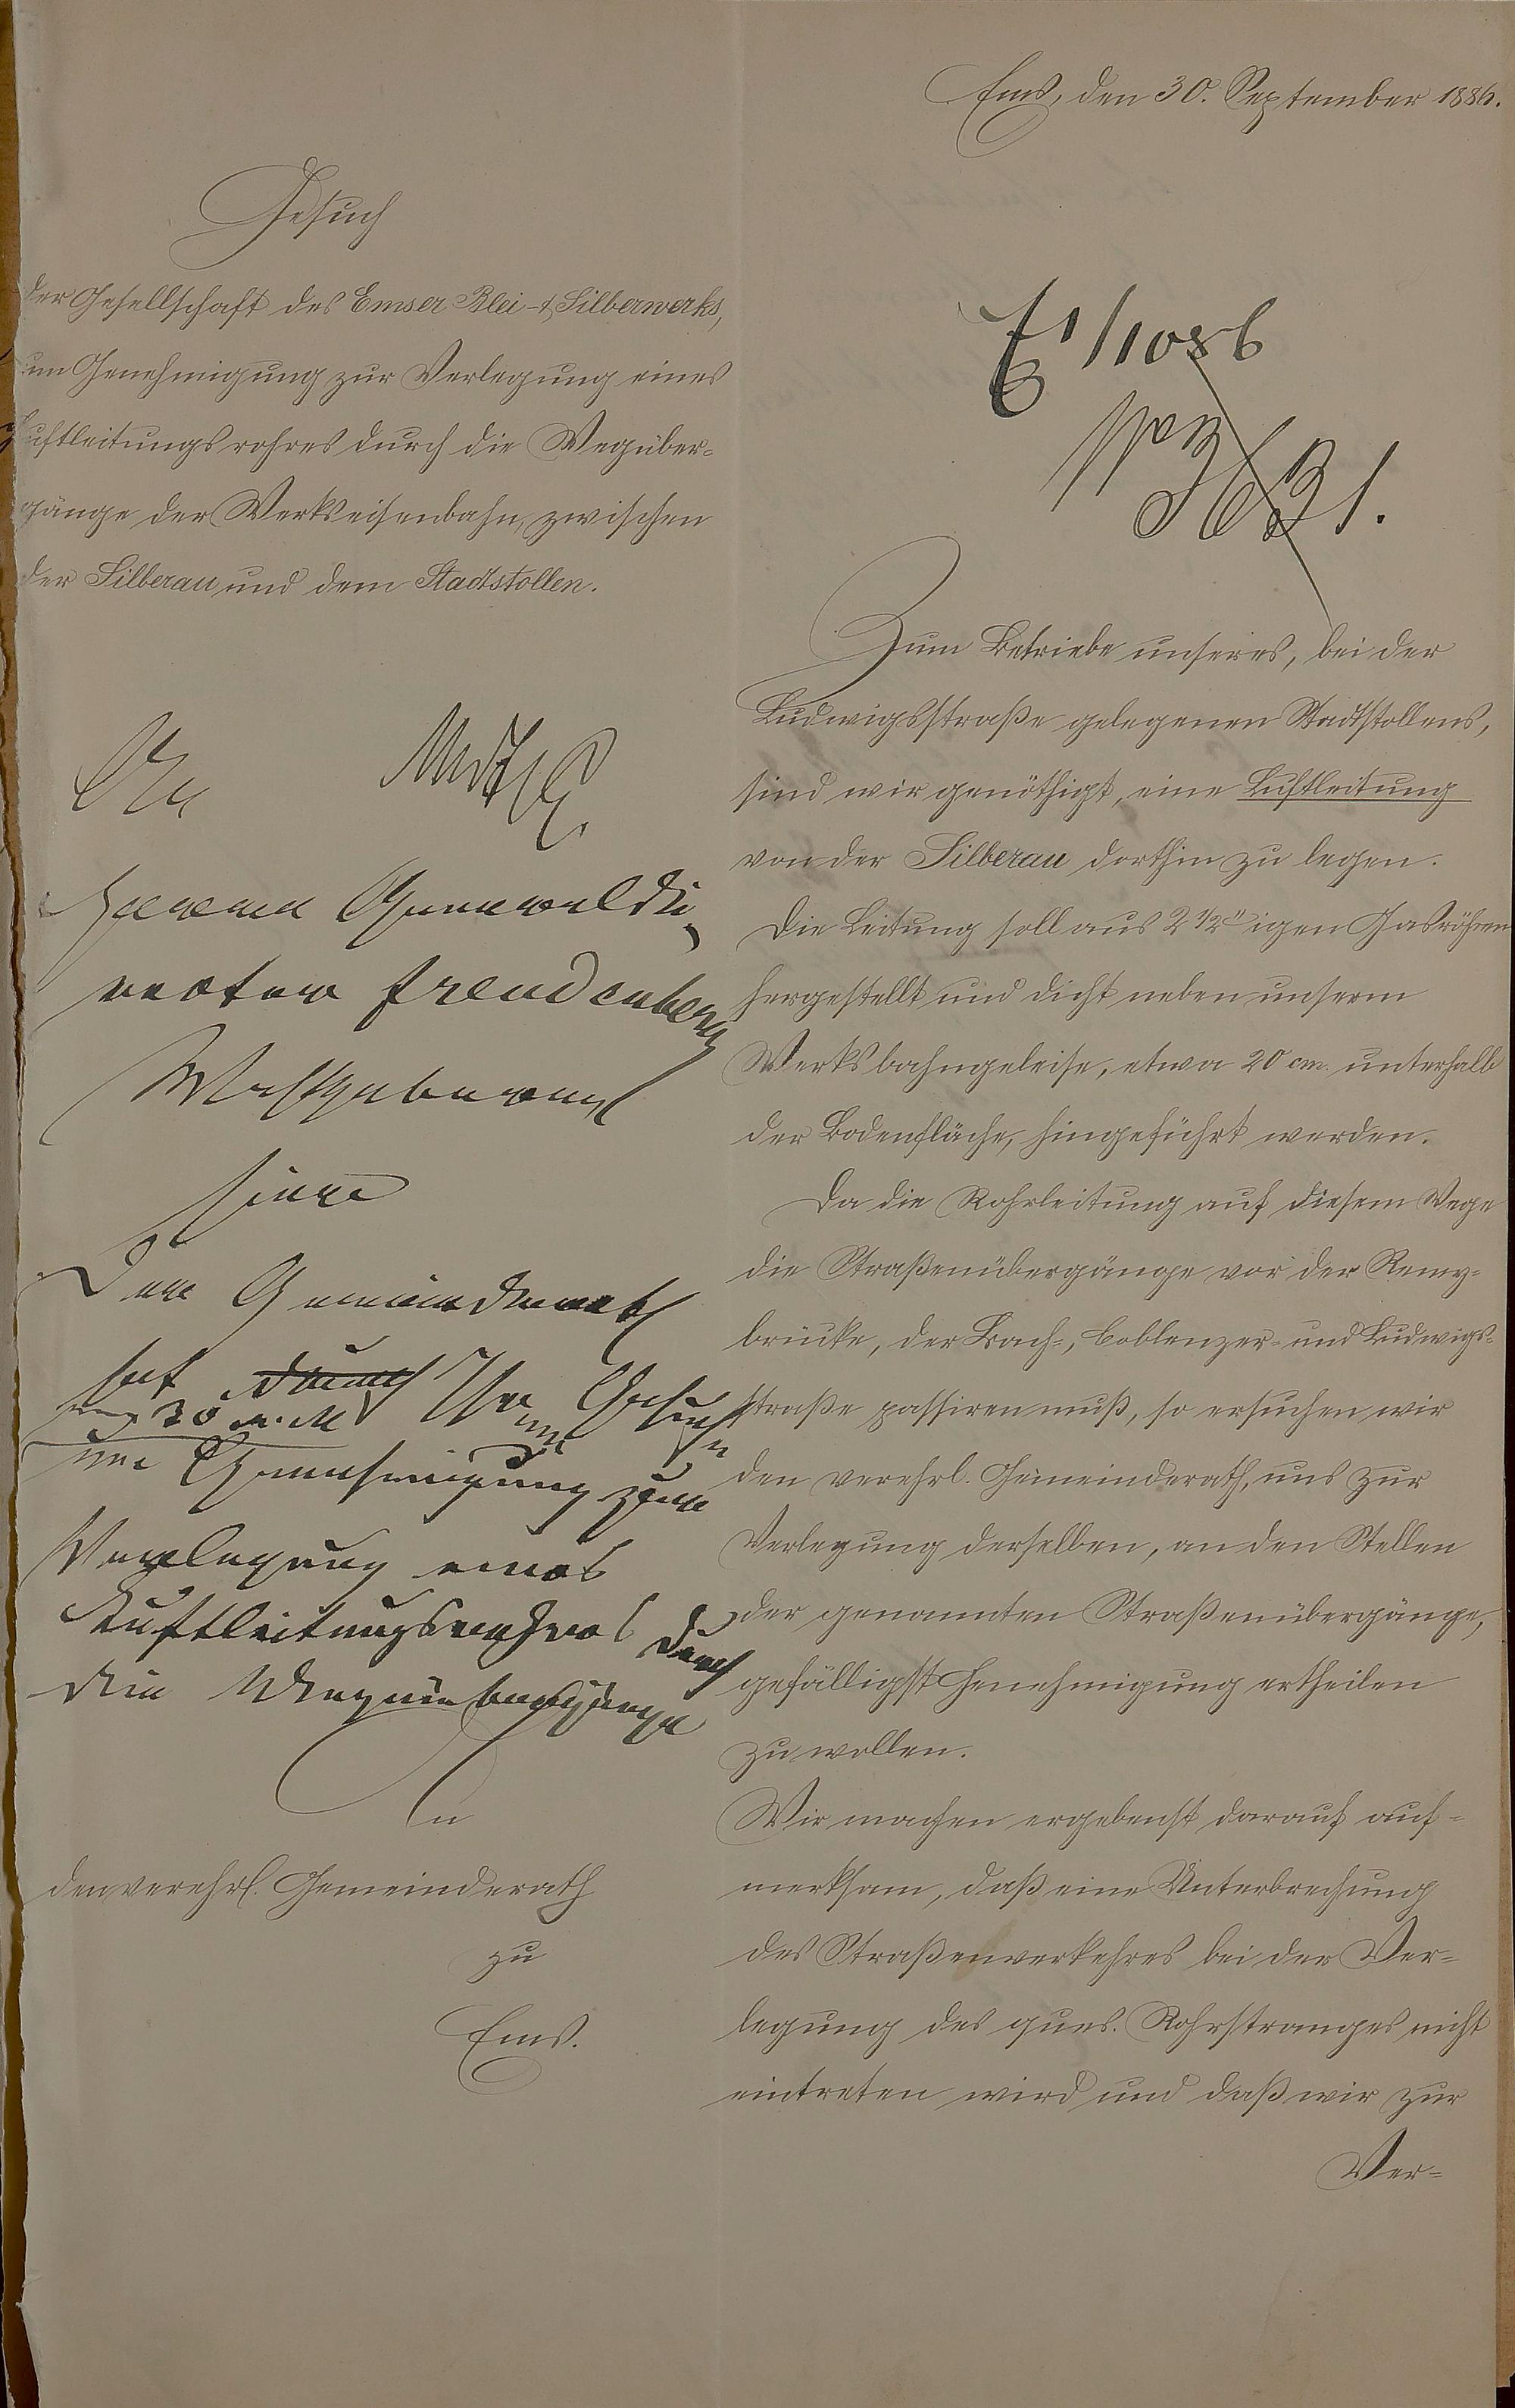 Ems, den 30. September 1886.
Gesuch
der Gesellschaft des Emser Blei- & Silberwerks,
um Genehmigung zur Verlegung eines
Luftleitungsrohres durch die Wegüber-
gänge der Werkseisenbahn, zwischen
der Silberau und dem Stadtstollen.
E 1/10 86
3631.
An
Herrn Generaldi-
rector Freudenberg
Wohlgeboren
hier
Der Gemeinderath
hat durch Ihr Gesuch
30 v. M
um Genehmigung zur
Verlegung eines
Luftleitungsrohres durch
die Wegübergänge
An
den verehrl. Gemeinderath
zu
Ems.
Zum Betriebe unseres, bei der
Ludwigsstraße gelegenen Stadtstollens,
sind wir genöthigt, eine Luftleitung
von der Silberau dorthin zu legen.
Die Leitung soll aus 2 1/2" igen Gasröhren
hergestellt und dicht neben unserm
Werksbahngeleise, etwa 20 cm. unterhalb
der Bodenfläche, hingeführt werden.
Da die Rohrleitung auf diesem Wege
die Straßenübergänge vor der Remy-
brücke, der Bach-, Coblenzer- und Ludwigs-
straße passiren muß, so ersuchen wir
den verehrl. Gemeinderath, uns zur
Verlegung derselben, an den Stellen
der genannten Straßenübergänge,
gefälligst Genehmigung ertheilen
zu wollen.
Wir machen ergebenst darauf auf-
merksam, daß eine Unterbrechung
des Straßenverkehres bei der Ver-
legung des ques. Rohrstranges nicht
eintreten wird und daß wir zur
Ver-